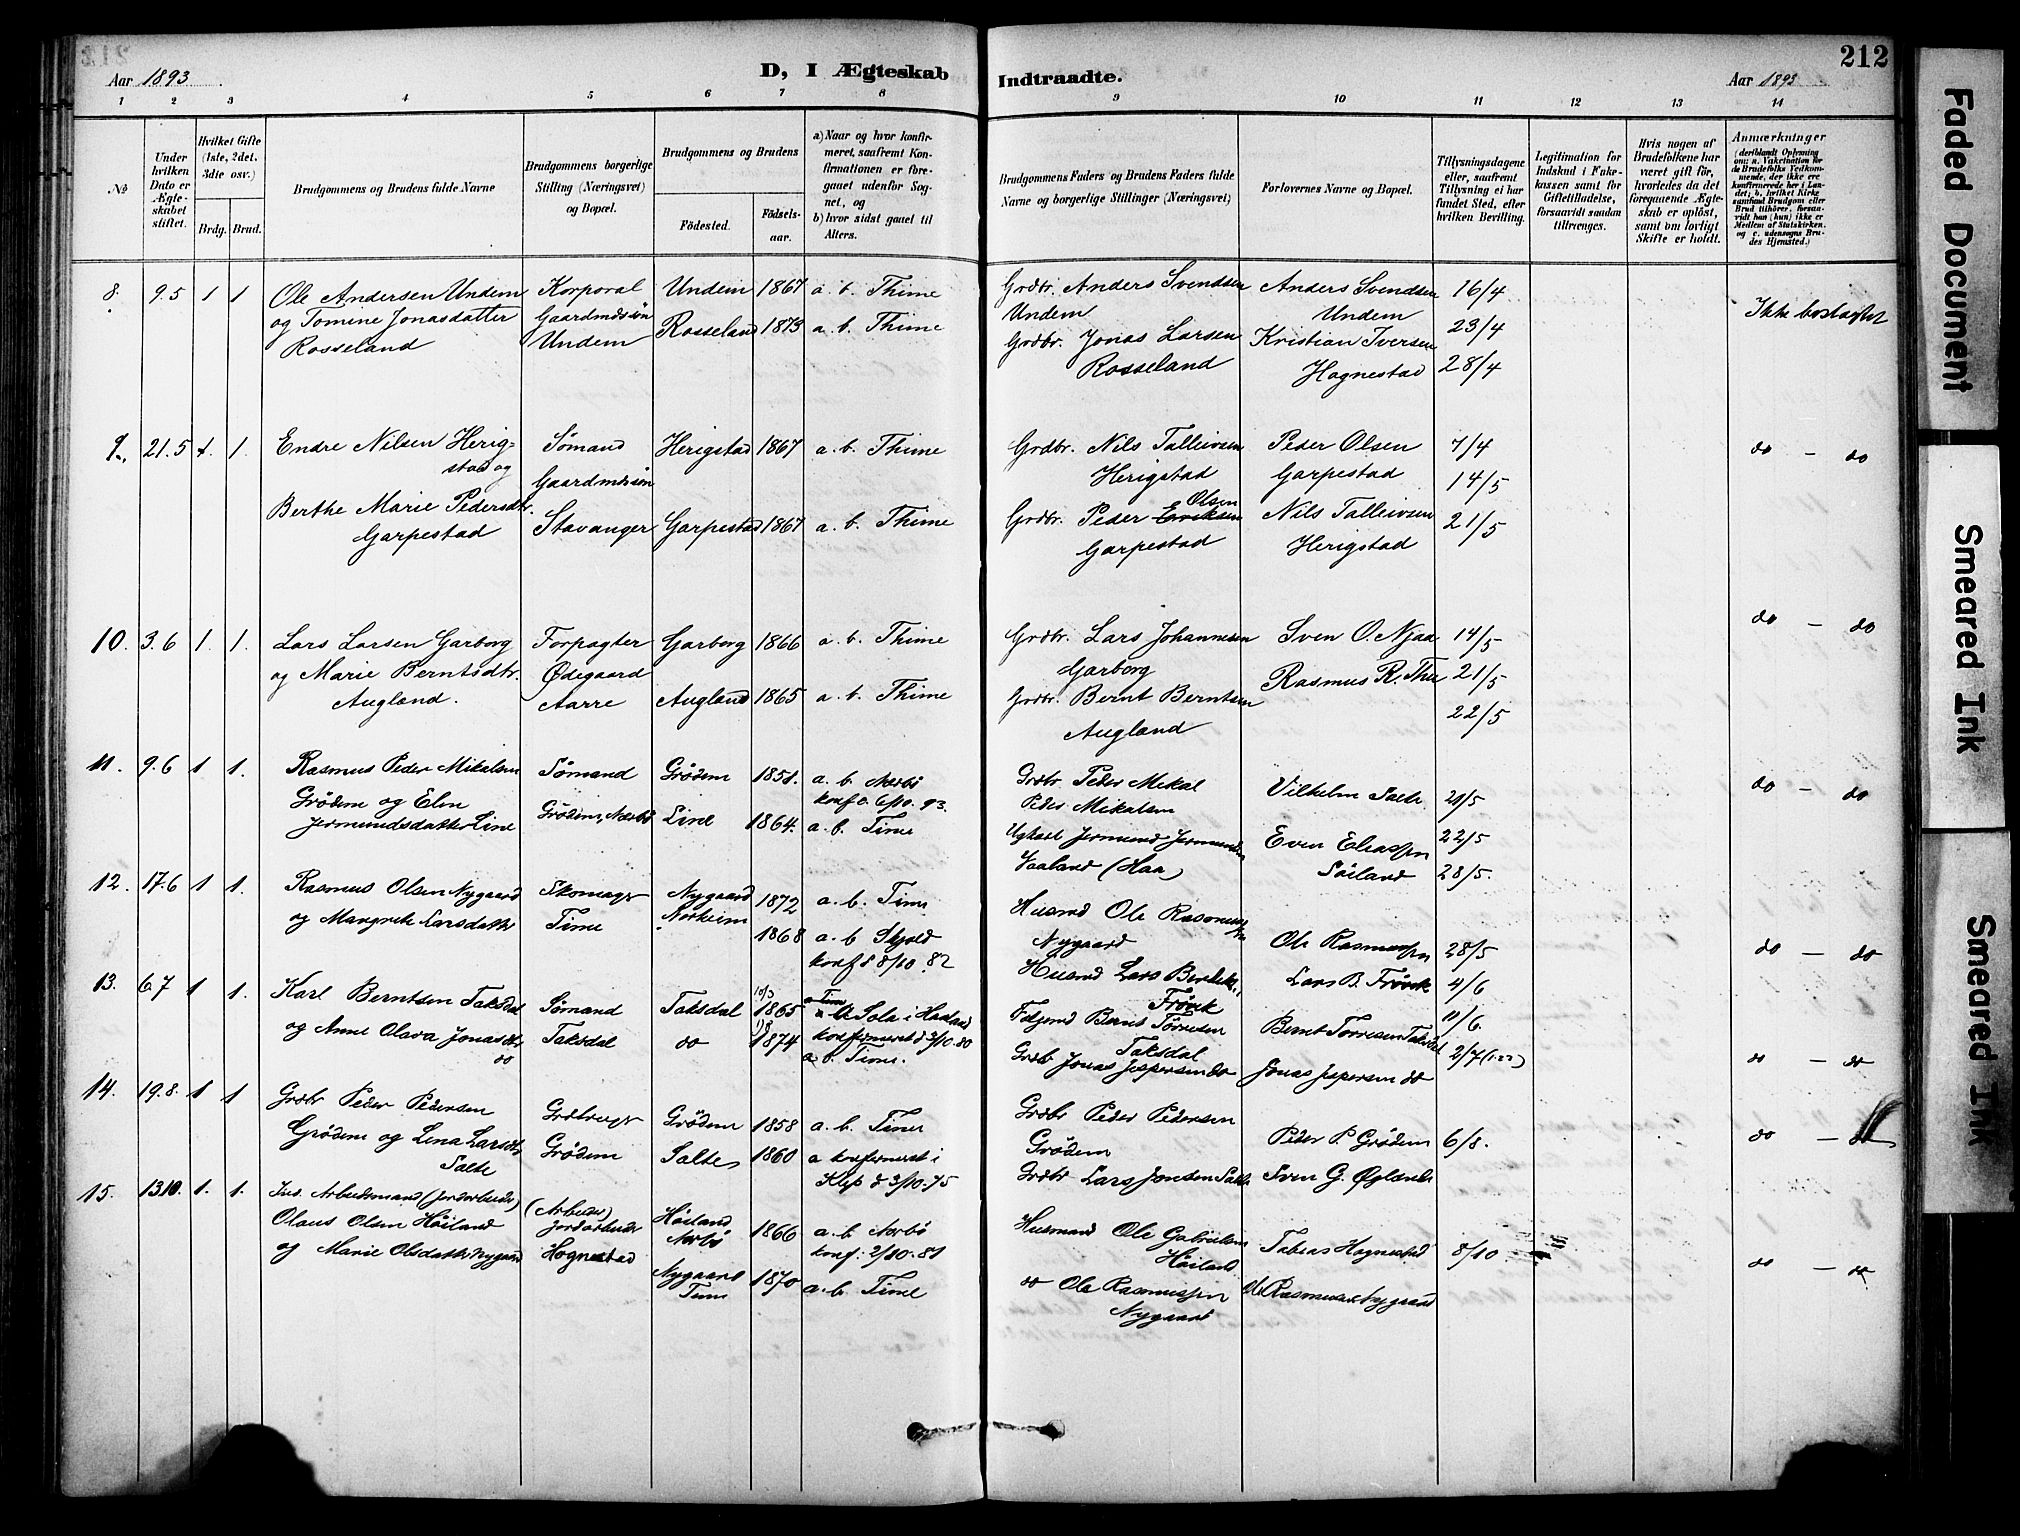 212
Aar 1893
D, I Ægteskab
Indtraadte.
Aar 1893
1 2 3 4 5 6 7 8 9 10 11 12 13 14
No
Under hvilken Dato er Ægteskabet stiftet.
Hvilket Gifte (1ste, 2det, 3die osv.)
Brdg. Brud.
Brudgommens og Brudens fulde Navne
Brudgommens borgerlige Stilling (Næringsvei) og Bopæl.
Brudgommens og Brudens
Fødested.
Fødselsaar.
a) Naar og hvor konfirmeret, saafremt Konfirmationen er foregaaet udenfor Sognet, og
b) hvor sidst gaaet til Alters.
Brudgommens Faders og Brudens Faders fulde Navne og borgerlige Stillinger (Næringsvei)
Forlovernes Navne og Bopæl.
Tillysningsdagene eller, saafremt Tillysning ei har fundet Sted, efter hvilken Bevilling.
Legitimation for Indskud i Enkekassen samt for Giftetilladelse, forsaavidt saadan tiltrænges.
Hvis nogen af Brudefolkene har været gift før, hvorledes da det foregaaende Ægteskab er opløst, samt om lovligt Skifte er holdt.
Anmærkninger
8. 9.5 1 1 Ole Andersen Undem Korporal Undem 1867 a. b. Thime Grdbr. Anders Svendsen Anders Svendsen 16/4
og Tomine Jonasdatter Gaardmdsøn Rosseland 1873 a. b. Thime Undem Undem 23/4 Ikke beslægtet
Rosseland Undem Grdbr. Jonas Larsen Kristian Iversen
Rosseland Hognestad 28/4
9. 21.5 1. 1. Endre Nilsen Herig- Sømand Herigstad 1867 a. b. Thime Grdbr. Nils Talleivsen Peder Olsen 7/4 do - do
stad og Gaardmdsøn Herigstad Garpestad 14/5
Berthe Marie Pedersdtr. Stavanger Garpestad 1867 a. b. Thime Grdbr. Peder Eriksen Olsen Nils Talleivsen 21/5
Garpestad Garpestad Herigstad
10. 3.6 1. 1. Lars Larsen Garborg Forpagter Garborg 1866 a. b. Thime Grdbr. Lars Johannesen Sven O. Njaa 14/5 do - do
og Marie Berntsdtr. Ødegaard Garborg Rasmus R. Thu 21/5
Augland. Aarre Augland 1865 a. b. Thime Grdbr. Bernt Berntsen 22/5
Augland
11. 9.6 1 1. Rasmus Peder Mikalsen Sømand Grødem 1851. a. b. Nærbø Grdbr Peder Mikal Vilhelm Salte 21/5 do - do
Grødem og Elen Grødem, Nærbø Line konf. Peder Mikalsen
Jermundsdatter Line 1864. a. b. Time Jermund 22/5
Vaaland (Haa) Even Eliassen Søiland 28/5.
12. 17.6 1 1. Rasmus Olsen Nygaard Skomager Nygaard 1872 a. b. Time Husmd Ole Rasmussen
og Margrete Larsdatter Time Norheim 1868 a. b. Skjold Nygaard Ole Rasmussen 28/5 do - do
konf d 8/10 82 Husmd Lars Lars B. Frøvik 4/6
Frøvik 11/6.
13. 6.7 1 1. Karl Berntsen Taksdal Sømand Taksdal 10/3 1865 Sola i Haaland Bernt Tørresen Bernt Tørresen Taksdal
og Anne Olava Jonasdtr Taksdal do 1874 konfirmeret d 3/10.80 Taksdal 2/7
do a. b. Time. Grdbr Jonas Jespersen do Jonas Jespersen do do - do
14. 19.8. 1 1 Grdbr Peder Pedersen Grdbruger Grødem 1858 a. b. Time Grdbr Peder Pedersen
Grødem og Lena Larsdtr Grødem Salte 1860 a konfirmeret i Grødem Peder P. Grødem 6/8. do - do
Salte Klep d 3/10.75 Grdbr Lars Jonsen Salte Sven G. Øgland
15. 13.10. 1. 1. Arbeidsmand (Jordarbeider) (Arbeider) Jordarbeider Høiland, Nærbø 1866 a. b. Nærbø Husmand Ole Gabrielsen
Olaus Olsen Høiland Hognestad konf: 2/10.81 Høiland Tobias Hognestad 8/10
og Marie Olsdatter Nygaard Nygaard Time 1870 a. b. Time do Ole Rasmussen Ole Rasmussen Nygaard do - do
Nygaard
Faded Document
Smeared Ink
Smeared Ink